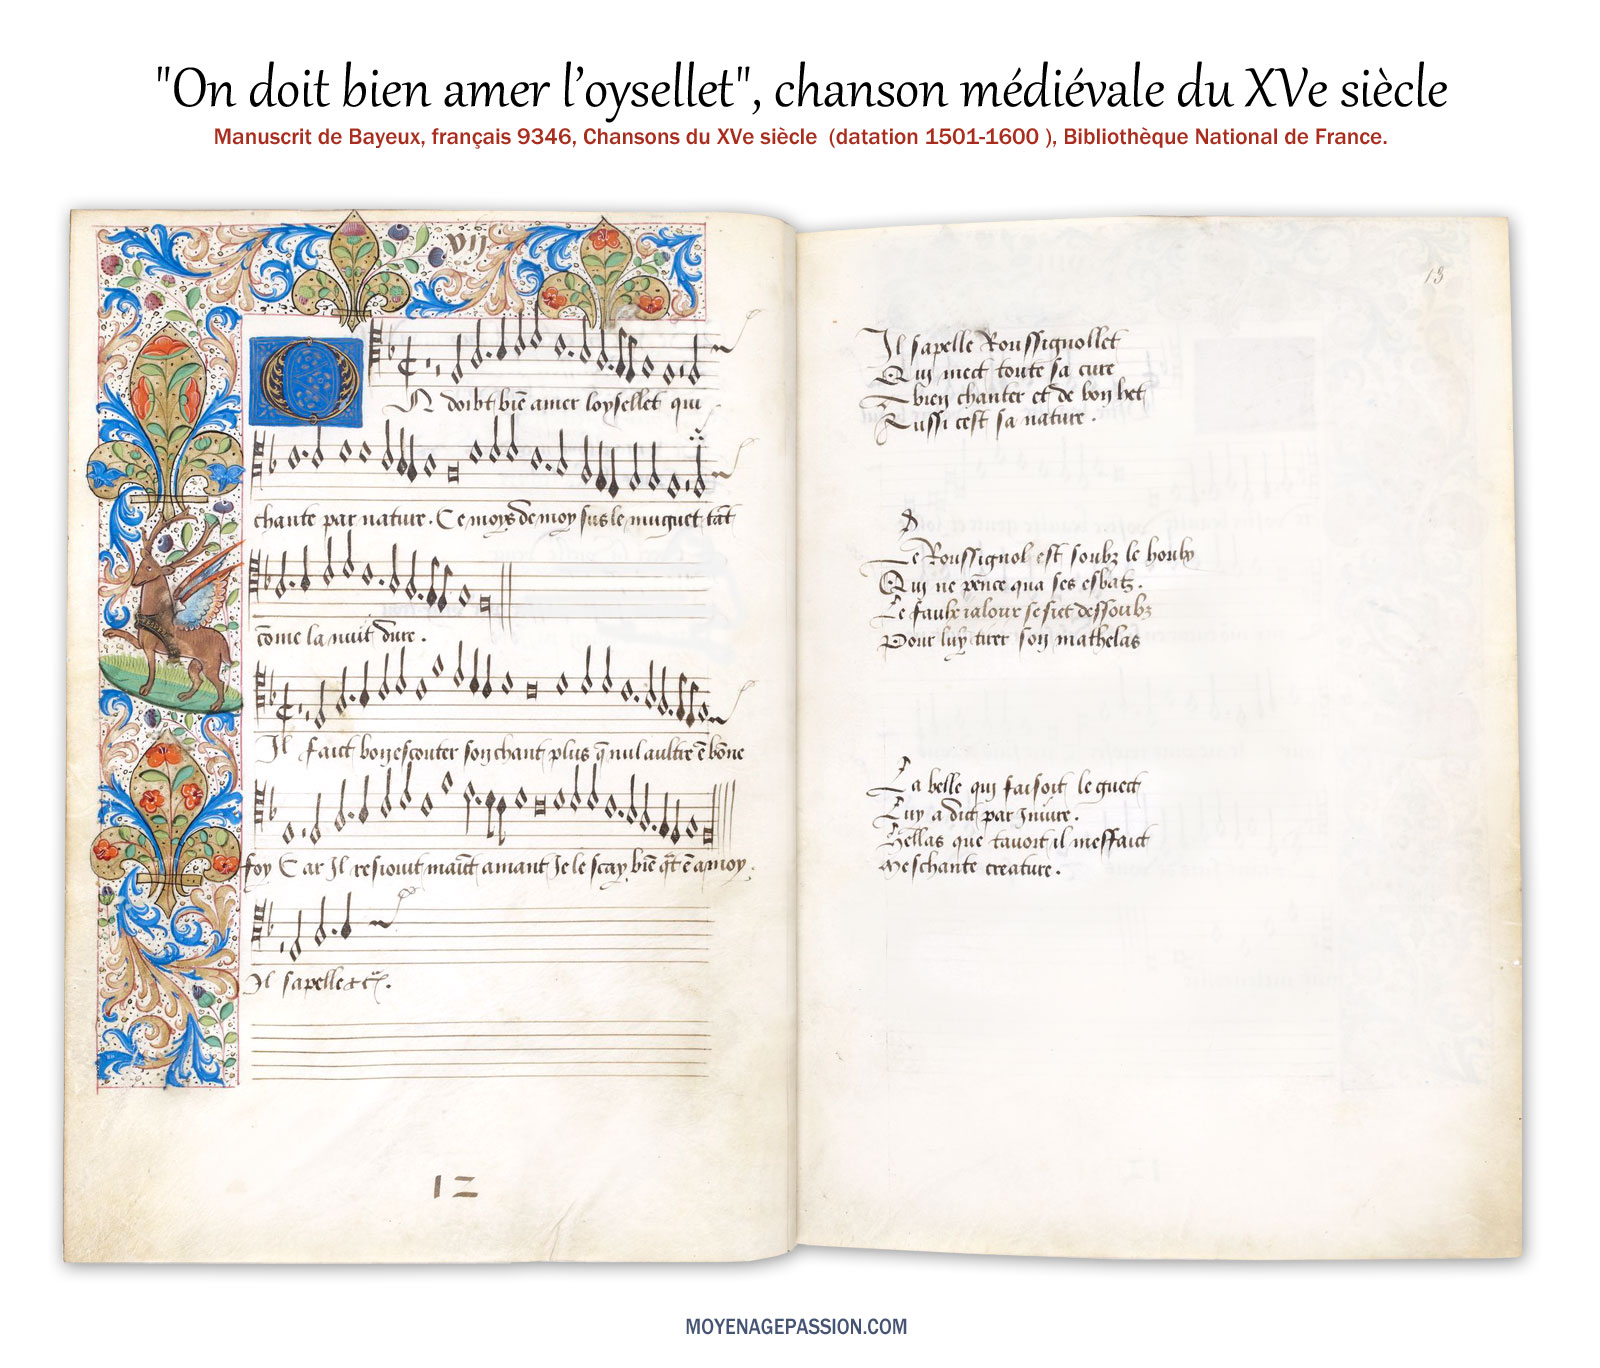 "On doit bien amer l’oysellet", chanson médiévale du XVe siècle
Manuscrit de Bayeux, français 9346, Chansons du XVe siècle (datation 1501-1600 ), Bibliothèque National de France.
vij
On doibt biē amer loysellet qui
chante par nature. Ce moys de moy sus le muguet tāt
cōme la nuit dure.
Il faict bon escouter son chant plus q̄ nul aultre ē bōne
foy Car Il resiouit mait amant Je le scay biē ē amoy.
Il sapelle
12
13
Il sapelle Roussignollet
Qui mect toute sa cure
A bien chanter et de bon het
Aussi cest sa nature.
Le Roussignol est soubz le houly
Qui ne pence qua ses esbatz.
Le faulx ialour se siet dessoubz
Pour luy tirer son mathelas
La belle qui faisoit le guect
Luy a dict par Iniure.
Hellas que tavoit il meffaict
Meschante creature.
MOYENAGEPASSION.COM